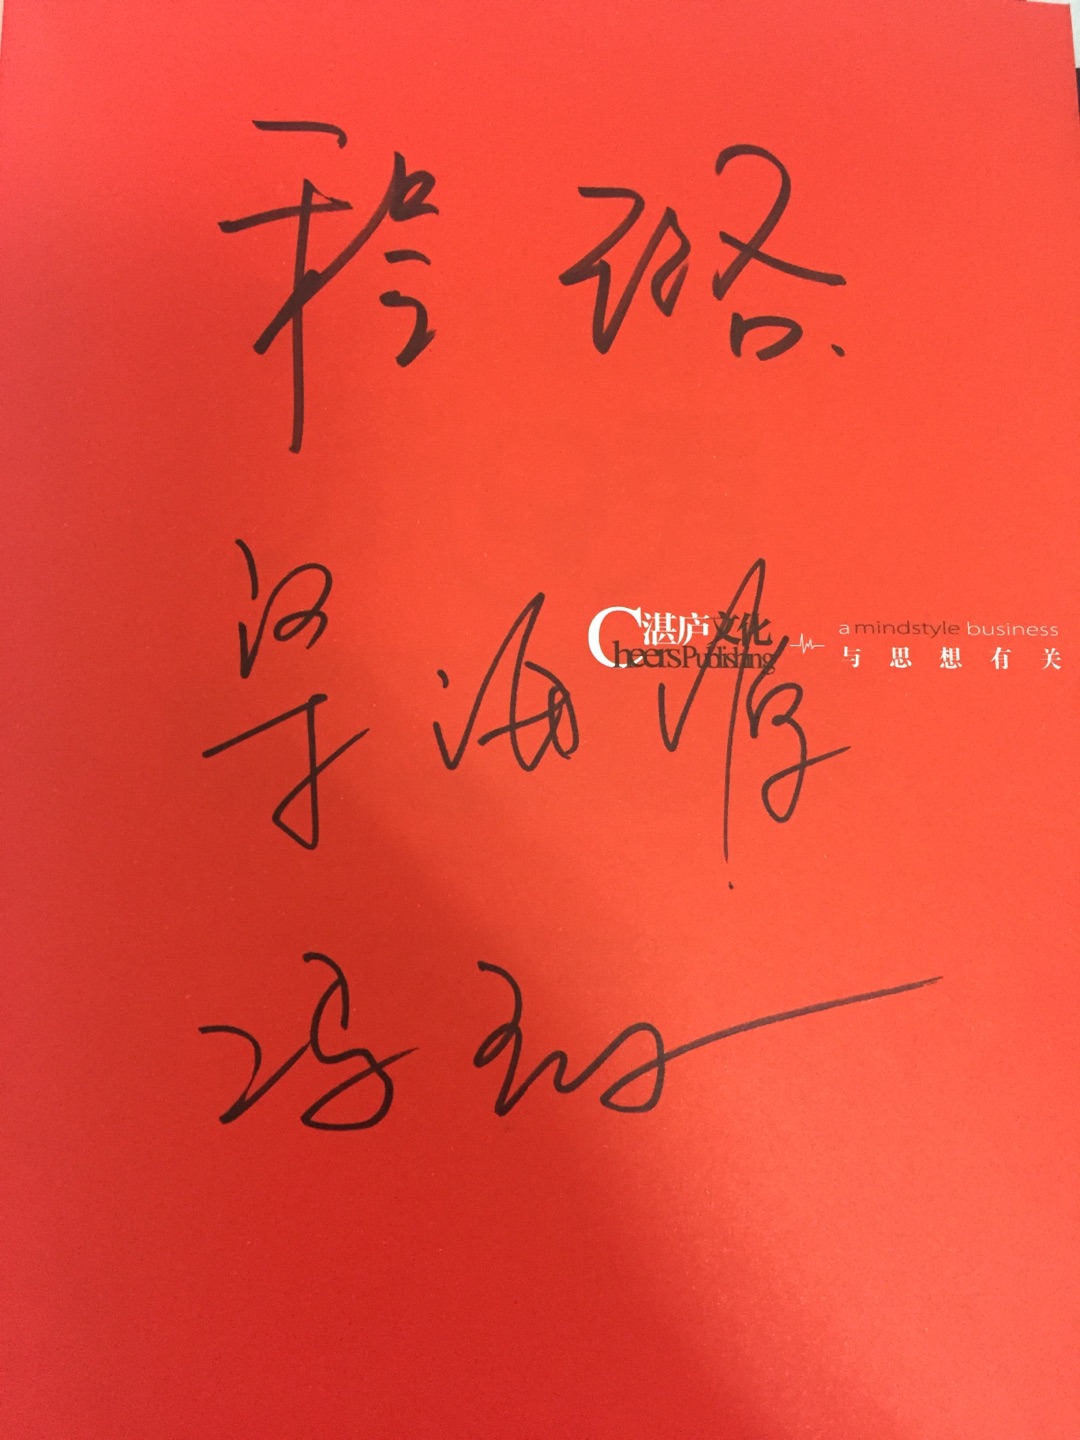 程璐
梁海源
湛庐文化
Cheers Publishing
a mindstyle business
与思想有关
冯